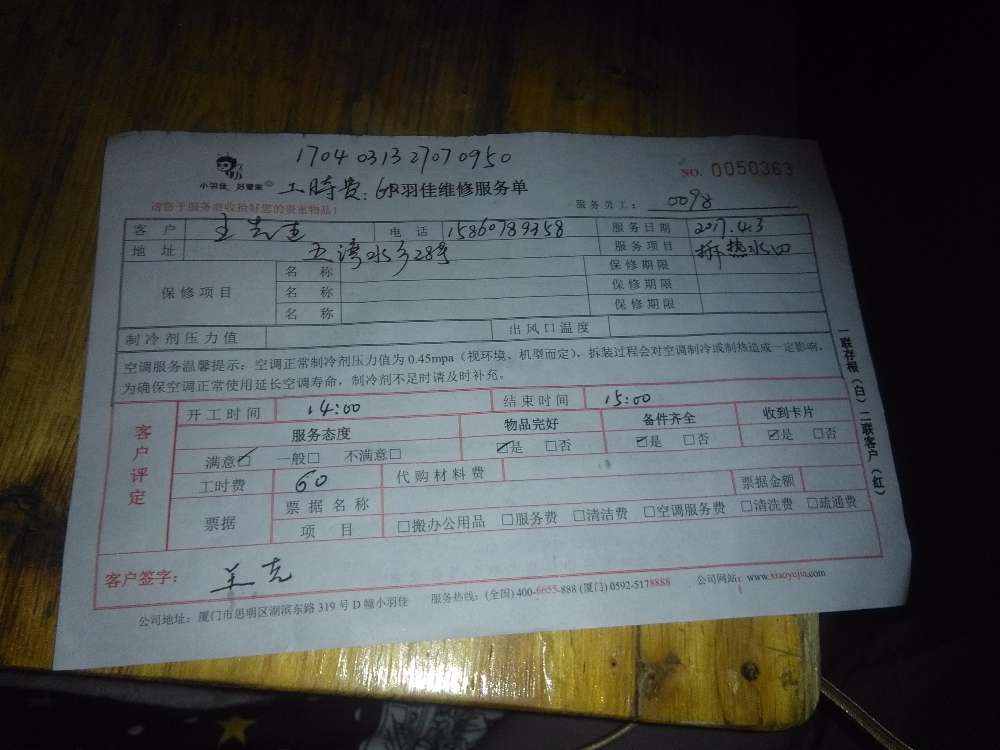 1704031327070950
小羽佳 好管家 工時费: 60 羽佳维修服务单 NO. 0050363
请您于服务前收拾好您的贵重物品! 服务员工: 0098
客户 王先生 电话 15860789358 服务日期 2017.4.3
地址 五湾水乡28号 服务项目 拆热水
保修项目 名称 保修期限
名称 保修期限
名称 保修期限
制冷剂压力值 出风口温度
空调服务温馨提示:空调正常制冷剂压力值为0.45mpa(视环境、机型而定),拆装过程会对空调制冷或制热造成一定影响,
为确保空调正常使用延长空调寿命,制冷剂不足时请及时补充。
客户评定
开工时间 14:00 结束时间 15:00
服务态度 物品完好 备件齐全 收到卡片
满意☑ 一般□ 不满意□ ☑是 □否 ☑是 □否 ☑是 □否
工时费 60 代购材料费
票据 票据名称 票据金额
项目 □搬办公用品 □服务费 □清洁费 □空调服务费 □清洗费 □疏通费
客户签字:
公司地址:厦门市思明区湖滨东路319号D幢小羽佳 服务热线:(全国)400-6655-888 (厦门)0592-5178888 公司网站:www.xiaoyujia.com
一联存根(白) 二联客户(红)